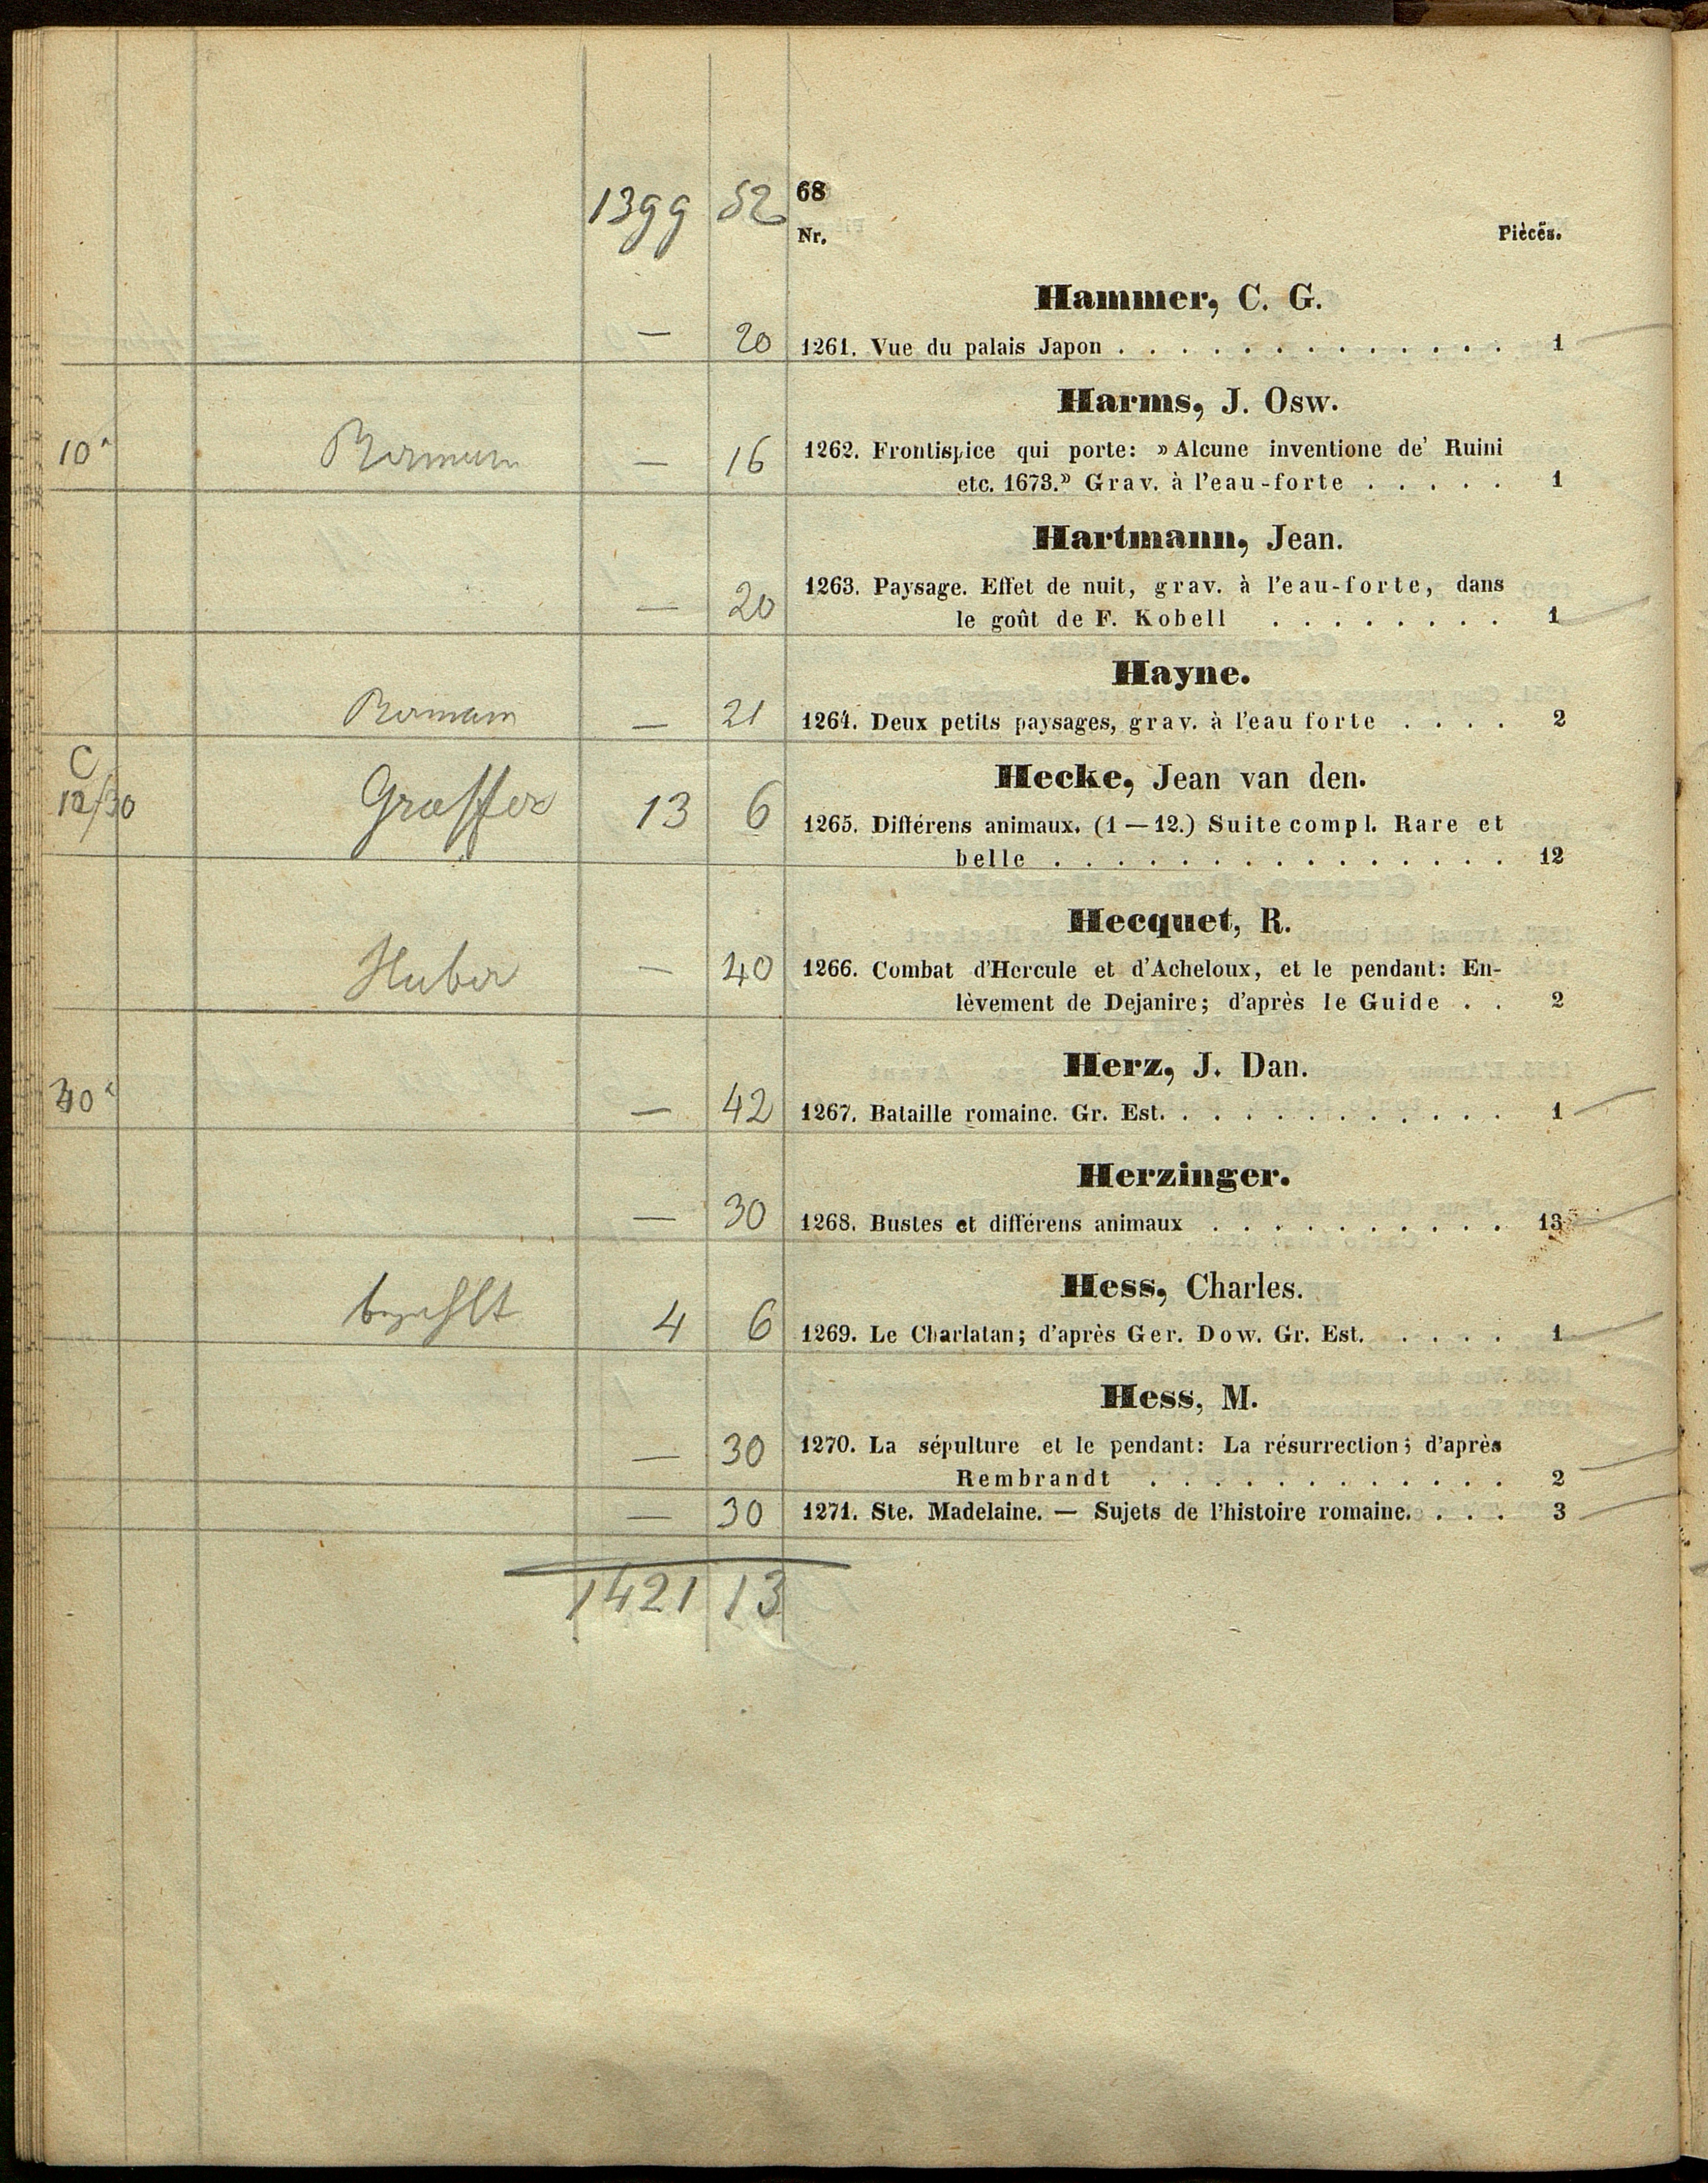 1399 52 68
Nr. Pièces.
Hammer, C. G.
— 20 1261. Vue du palais Japon . . . . . . . . . . . . . 1
Harms, J. Osw.
10 — 16 1262. Frontispice qui porte: »Alcune inventione de' Ruini
etc. 1673.» Grav. à l'eau-forte . . . . . 1
Hartmann, Jean.
1263. Paysage. Effet de nuit, grav. à l'eau-forte, dans
— 20 le goût de F. Kobell . . . . . . . . 1
Hayne.
— 21 1264. Deux petits paysages, grav. à l'eau forte . . . . 2
C
Hecke, Jean van den.
12/30 Graffer 13 6 1265. Différens animaux. (1—12.) Suite compl. Rare et
belle . . . . . . . . . . . . . . . 12
Hecquet, R.
Huber — 40 1266. Combat d'Hercule et d'Acheloux, et le pendant: En-
lèvement de Dejanire; d'après le Guide . . 2
Herz, J. Dan.
— 42 1267. Bataille romaine. Gr. Est. . . . . . . . . . . . 1
Herzinger.
— 30 1268. Bustes et différens animaux . . . . . . . . . . 13
Hess, Charles.
bezahlt 4 6 1269. Le Charlatan; d'après Ger. Dow. Gr. Est. . . . . 1
Hess, M.
— 30 1270. La sépulture et le pendant: La résurrection; d'après
Rembrandt . . . . . . . . . . . . 2
— 30 1271. Ste. Madelaine. — Sujets de l'histoire romaine. . . . 3
1421 13